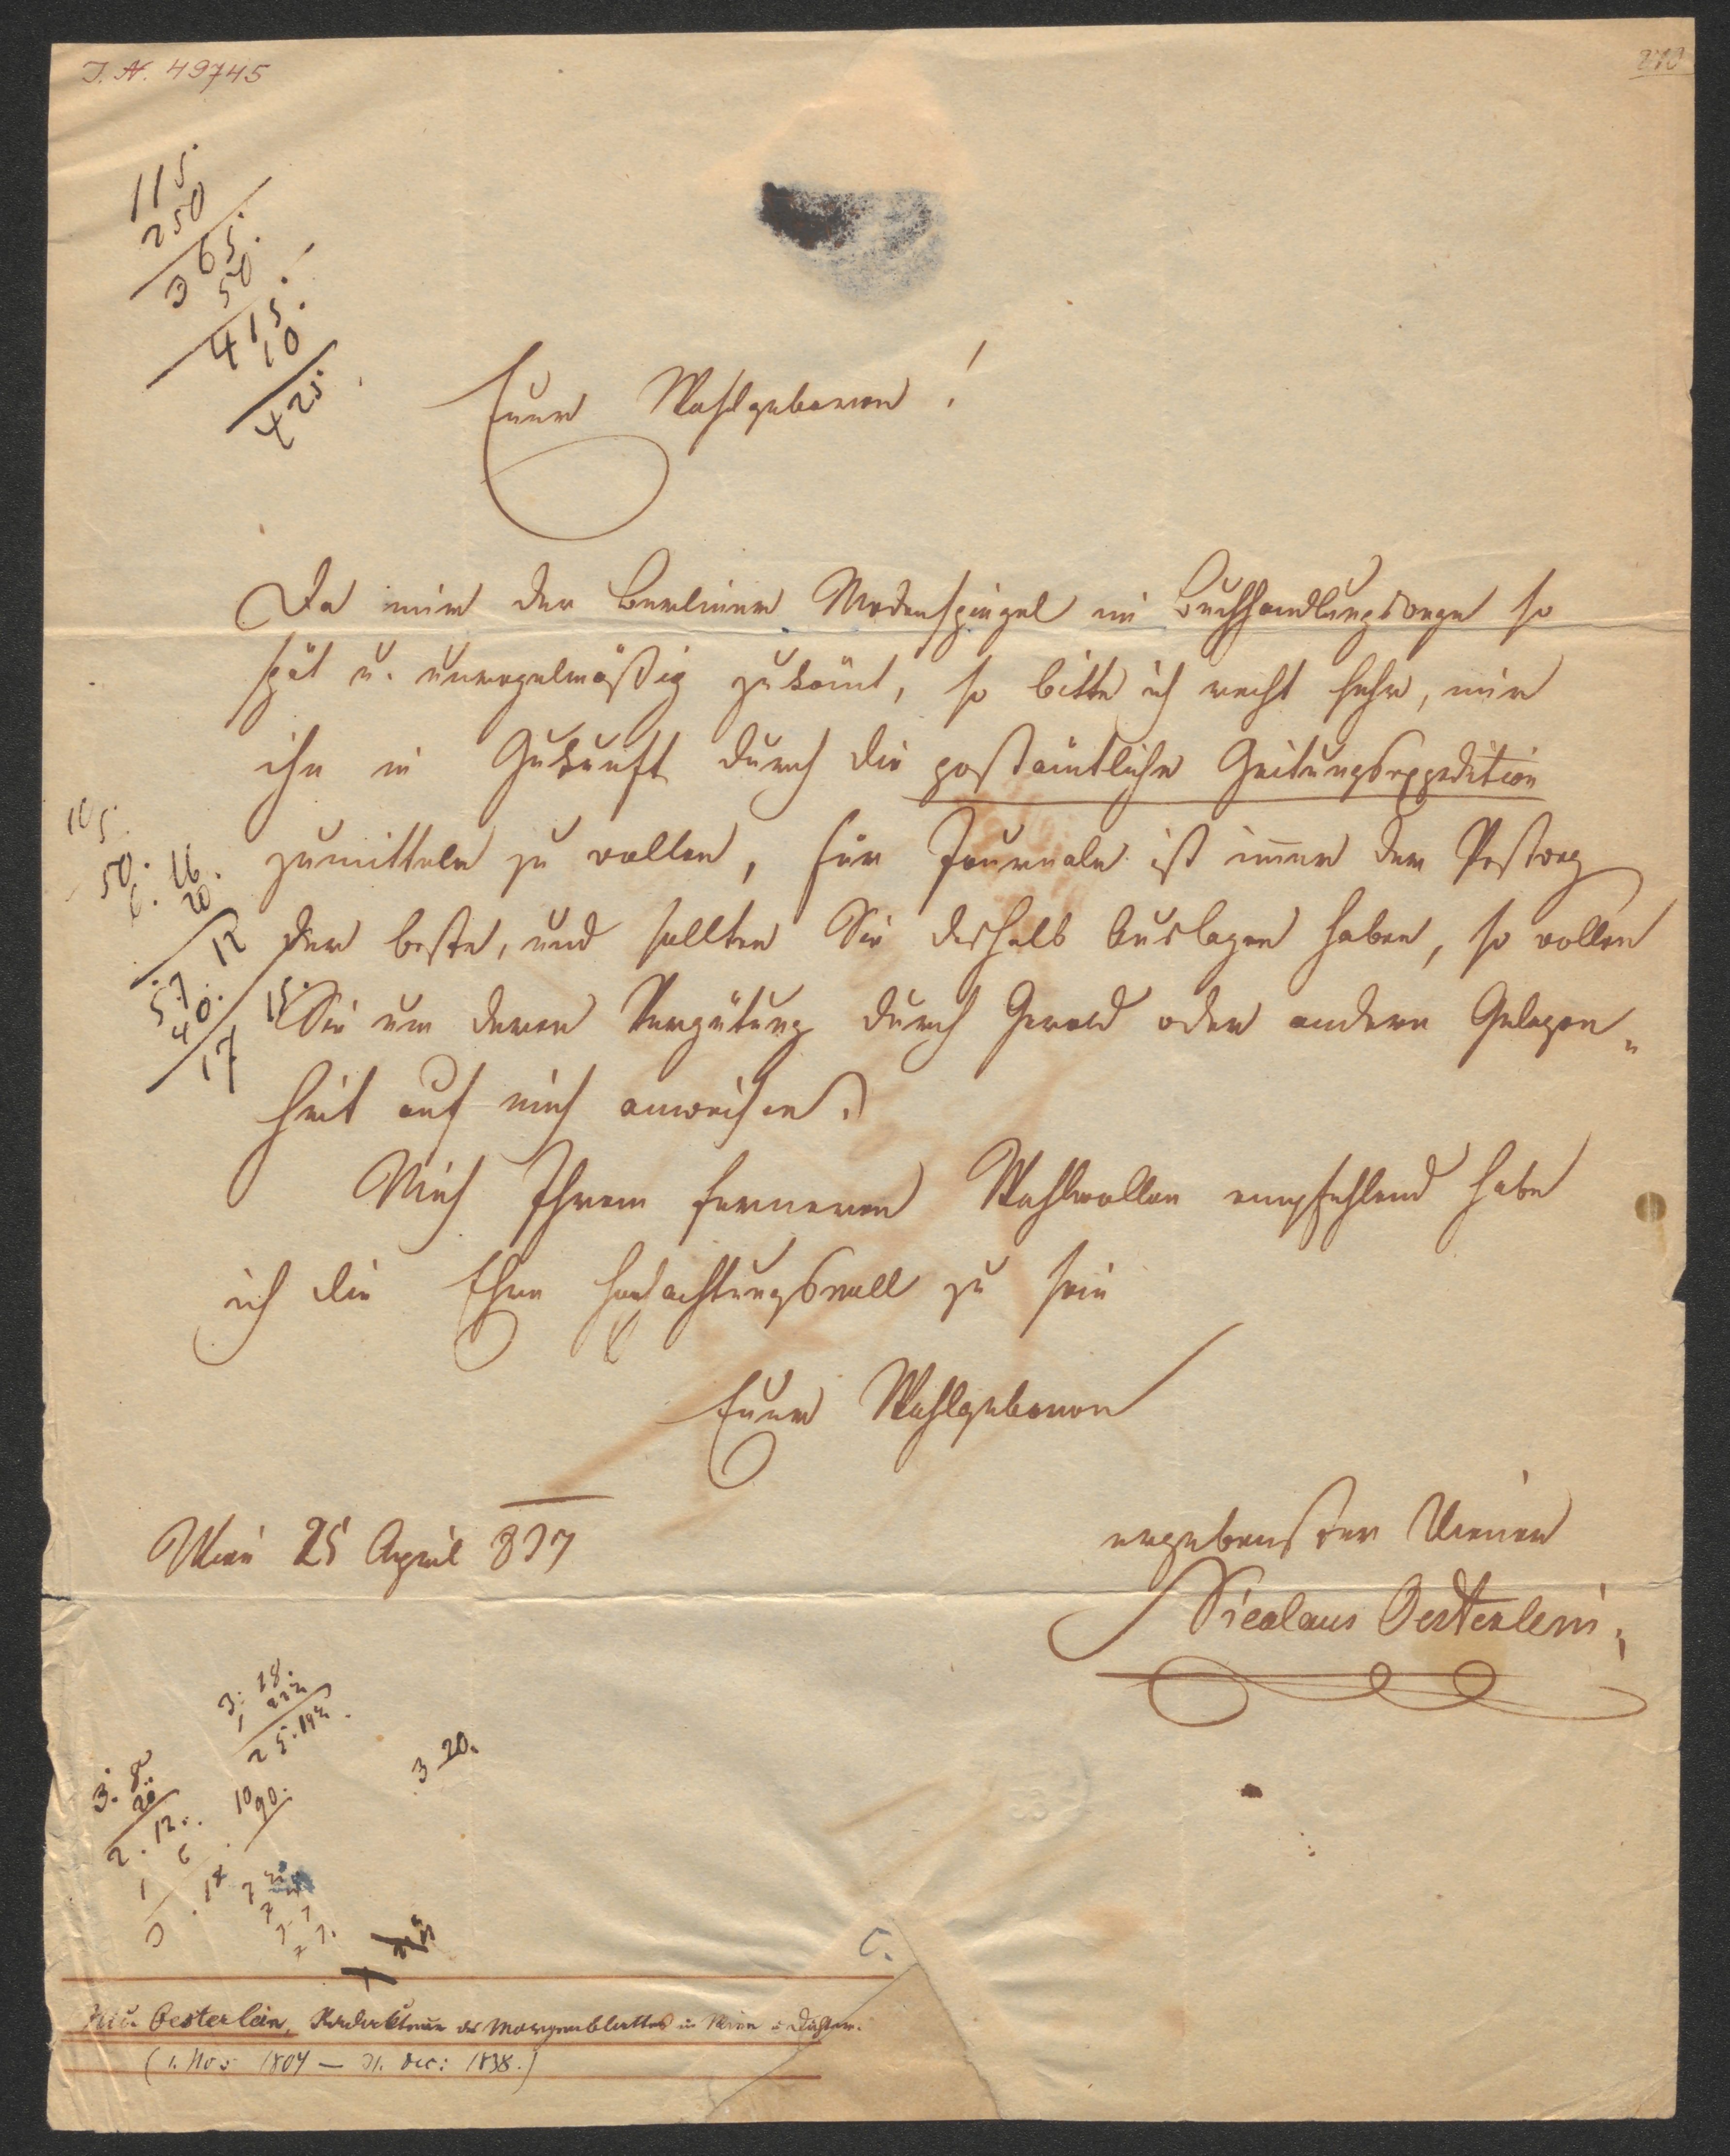 I. N. 49745
210
115.
250
365.
50
415.
10
425.
Euer Wohlgeboren!
Da mir der Berliner Modenspiegel im Buchhandlungswege so
spät u. unregelmäßig zukom̄t, so bitte ich recht sehr, mir
ihn in Zukunft durch die postämtliche Zeitungsexpedition
zumitteln zu wollen, für Journale ist im̄er der Postweg
der beste, und sollten Sie deshalb Auslagen haben, so wollen
Sie um deren Vergütung durch Gerold oder andere Gelegen„
heit auf mich anweisen.
Mich Ihrem ferneren Wohlwollen empfehlend habe
ich die Ehre hochachtungsvoll zu sein
Euer Wohlgeboren
Wien 25 April 837
ergebenster Diener
Nicolaus Oesterlein
3 20.
C.
Nic. Oesterlein, Redakteur des Morgenblattes in Wien u Dichter.
(1. Nov 1804 — 31. Dec: 1838.)